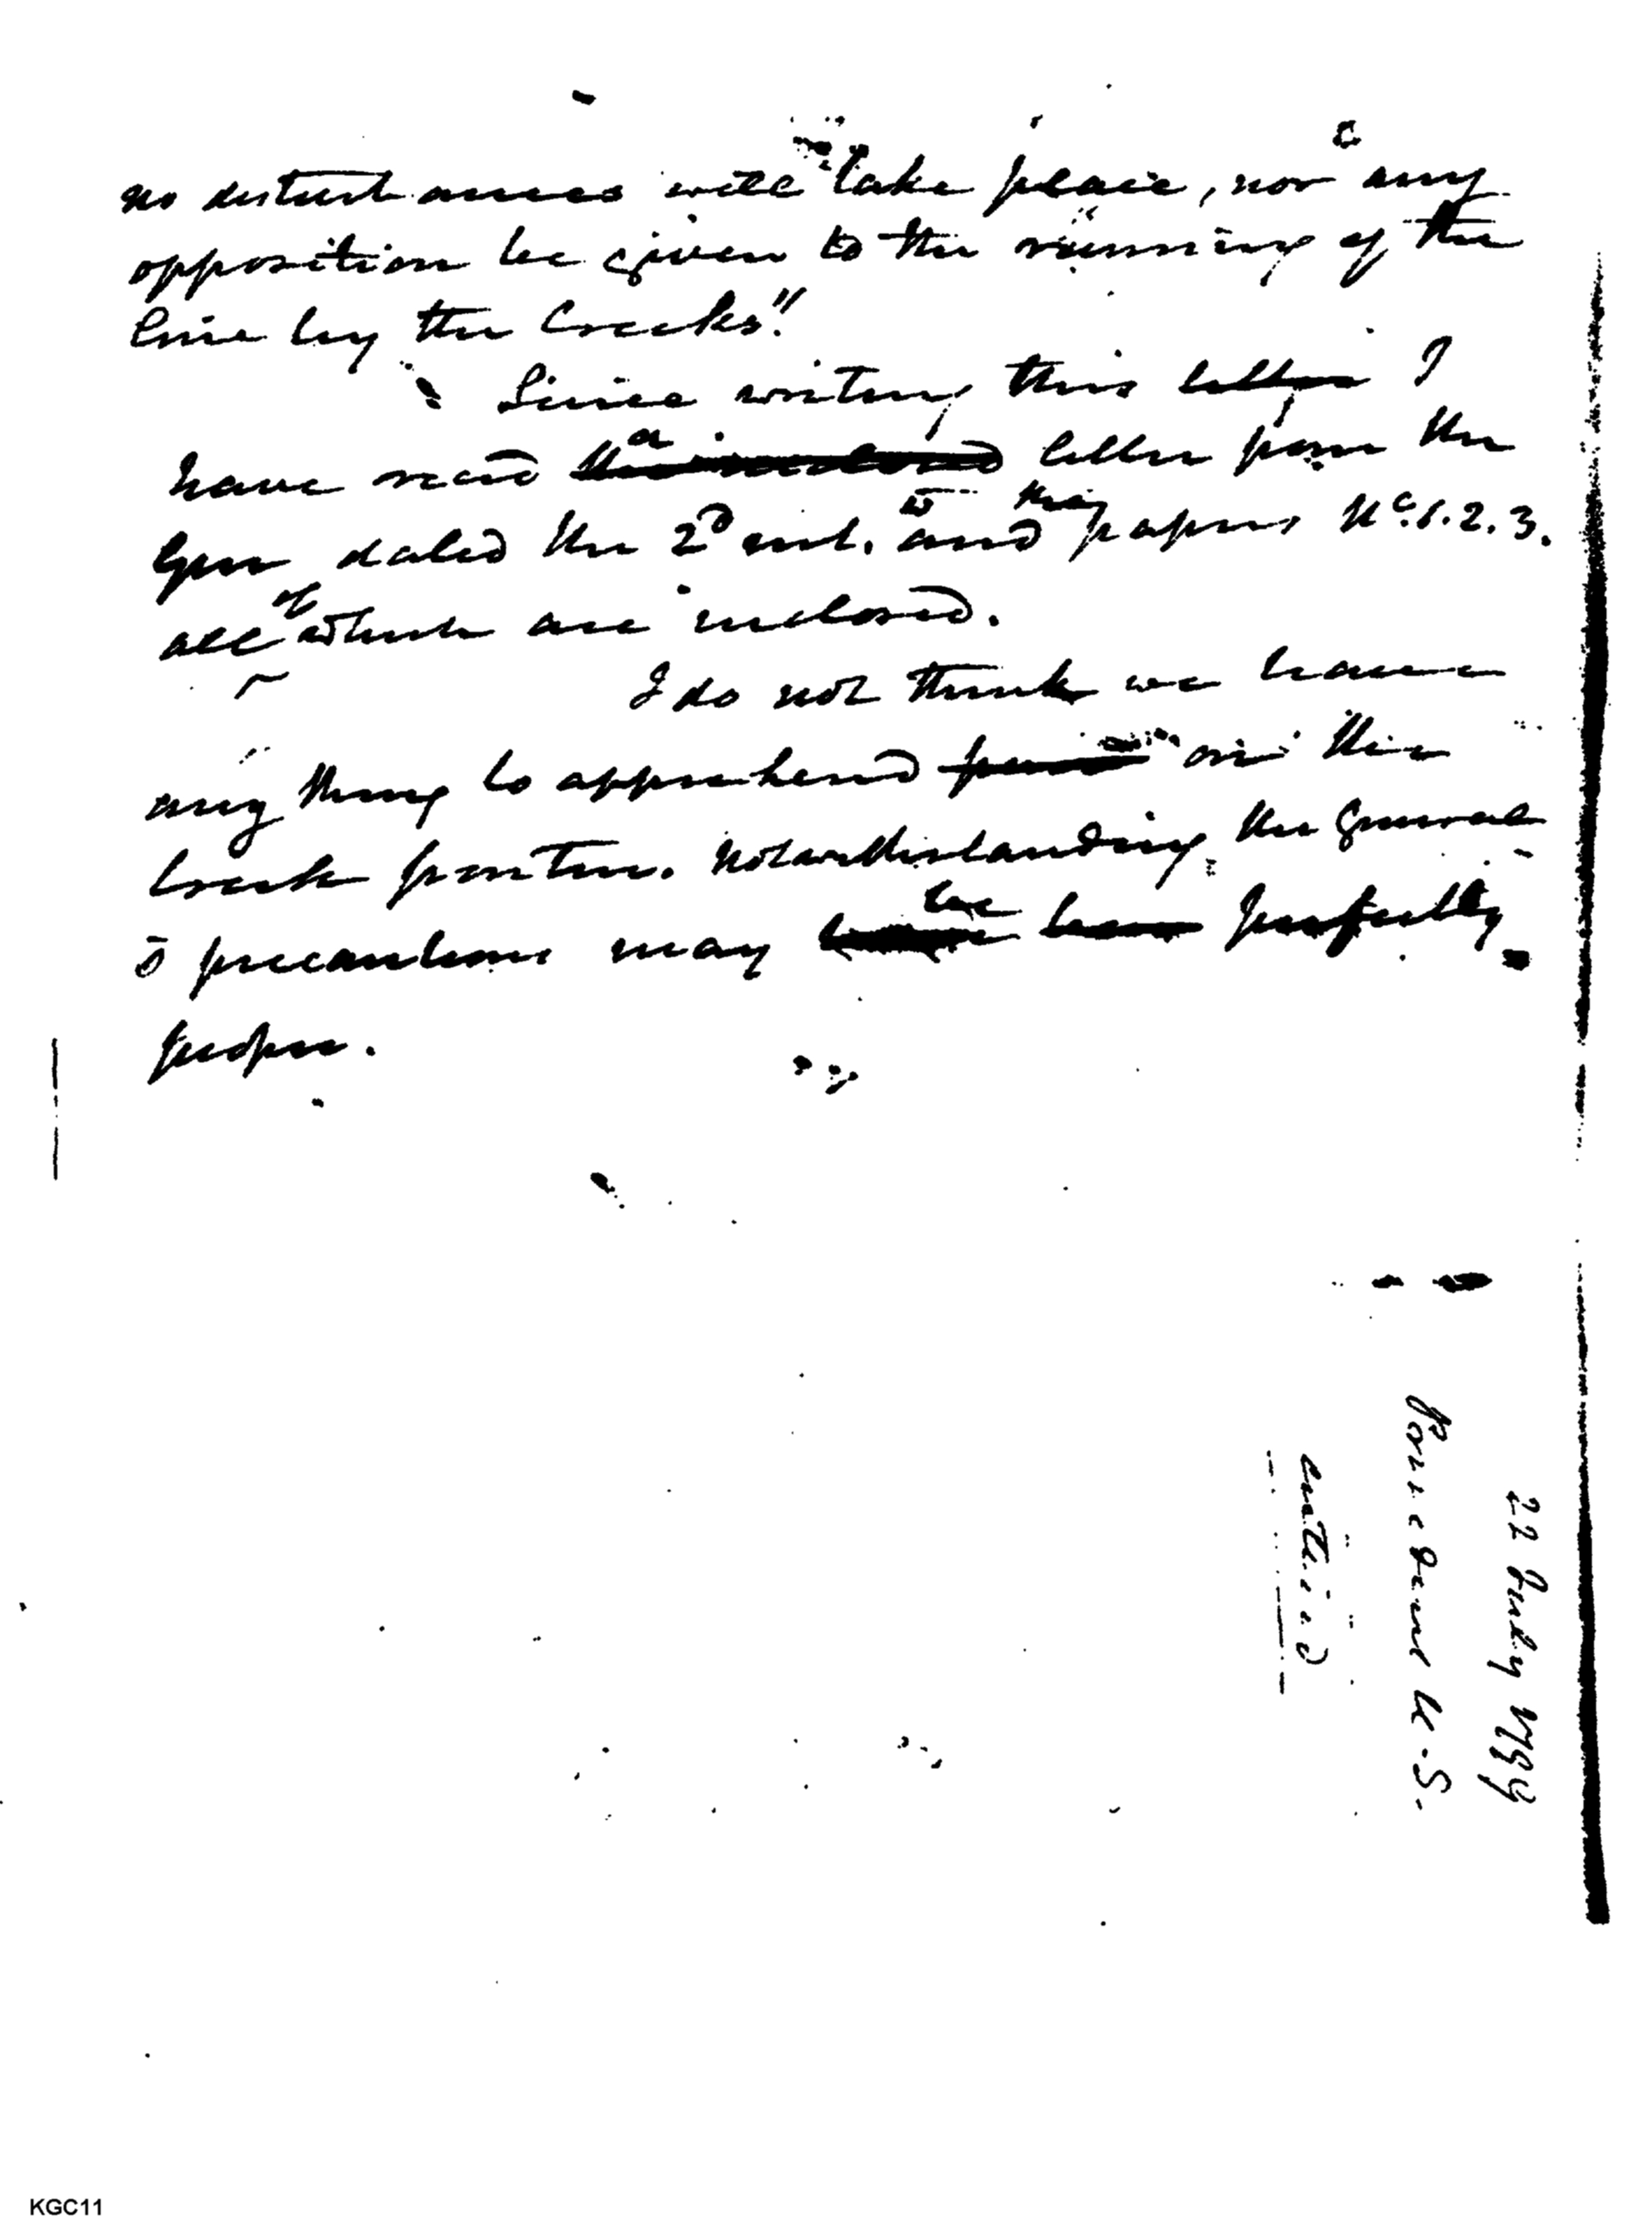 no disturbances will take place, nor any
opposition be given to the running of the
line by the Creeks."
Since writing this letter I
have recd a letter from the
dated the 2d and papers No. 1. 2. 3.
all of which are inclosed.
I do not think we have
any thing to apprehend on the
Creek frontier. Notwithstanding, the General
s precautions may be perfectly
proper.
22 July 1797
KGC11